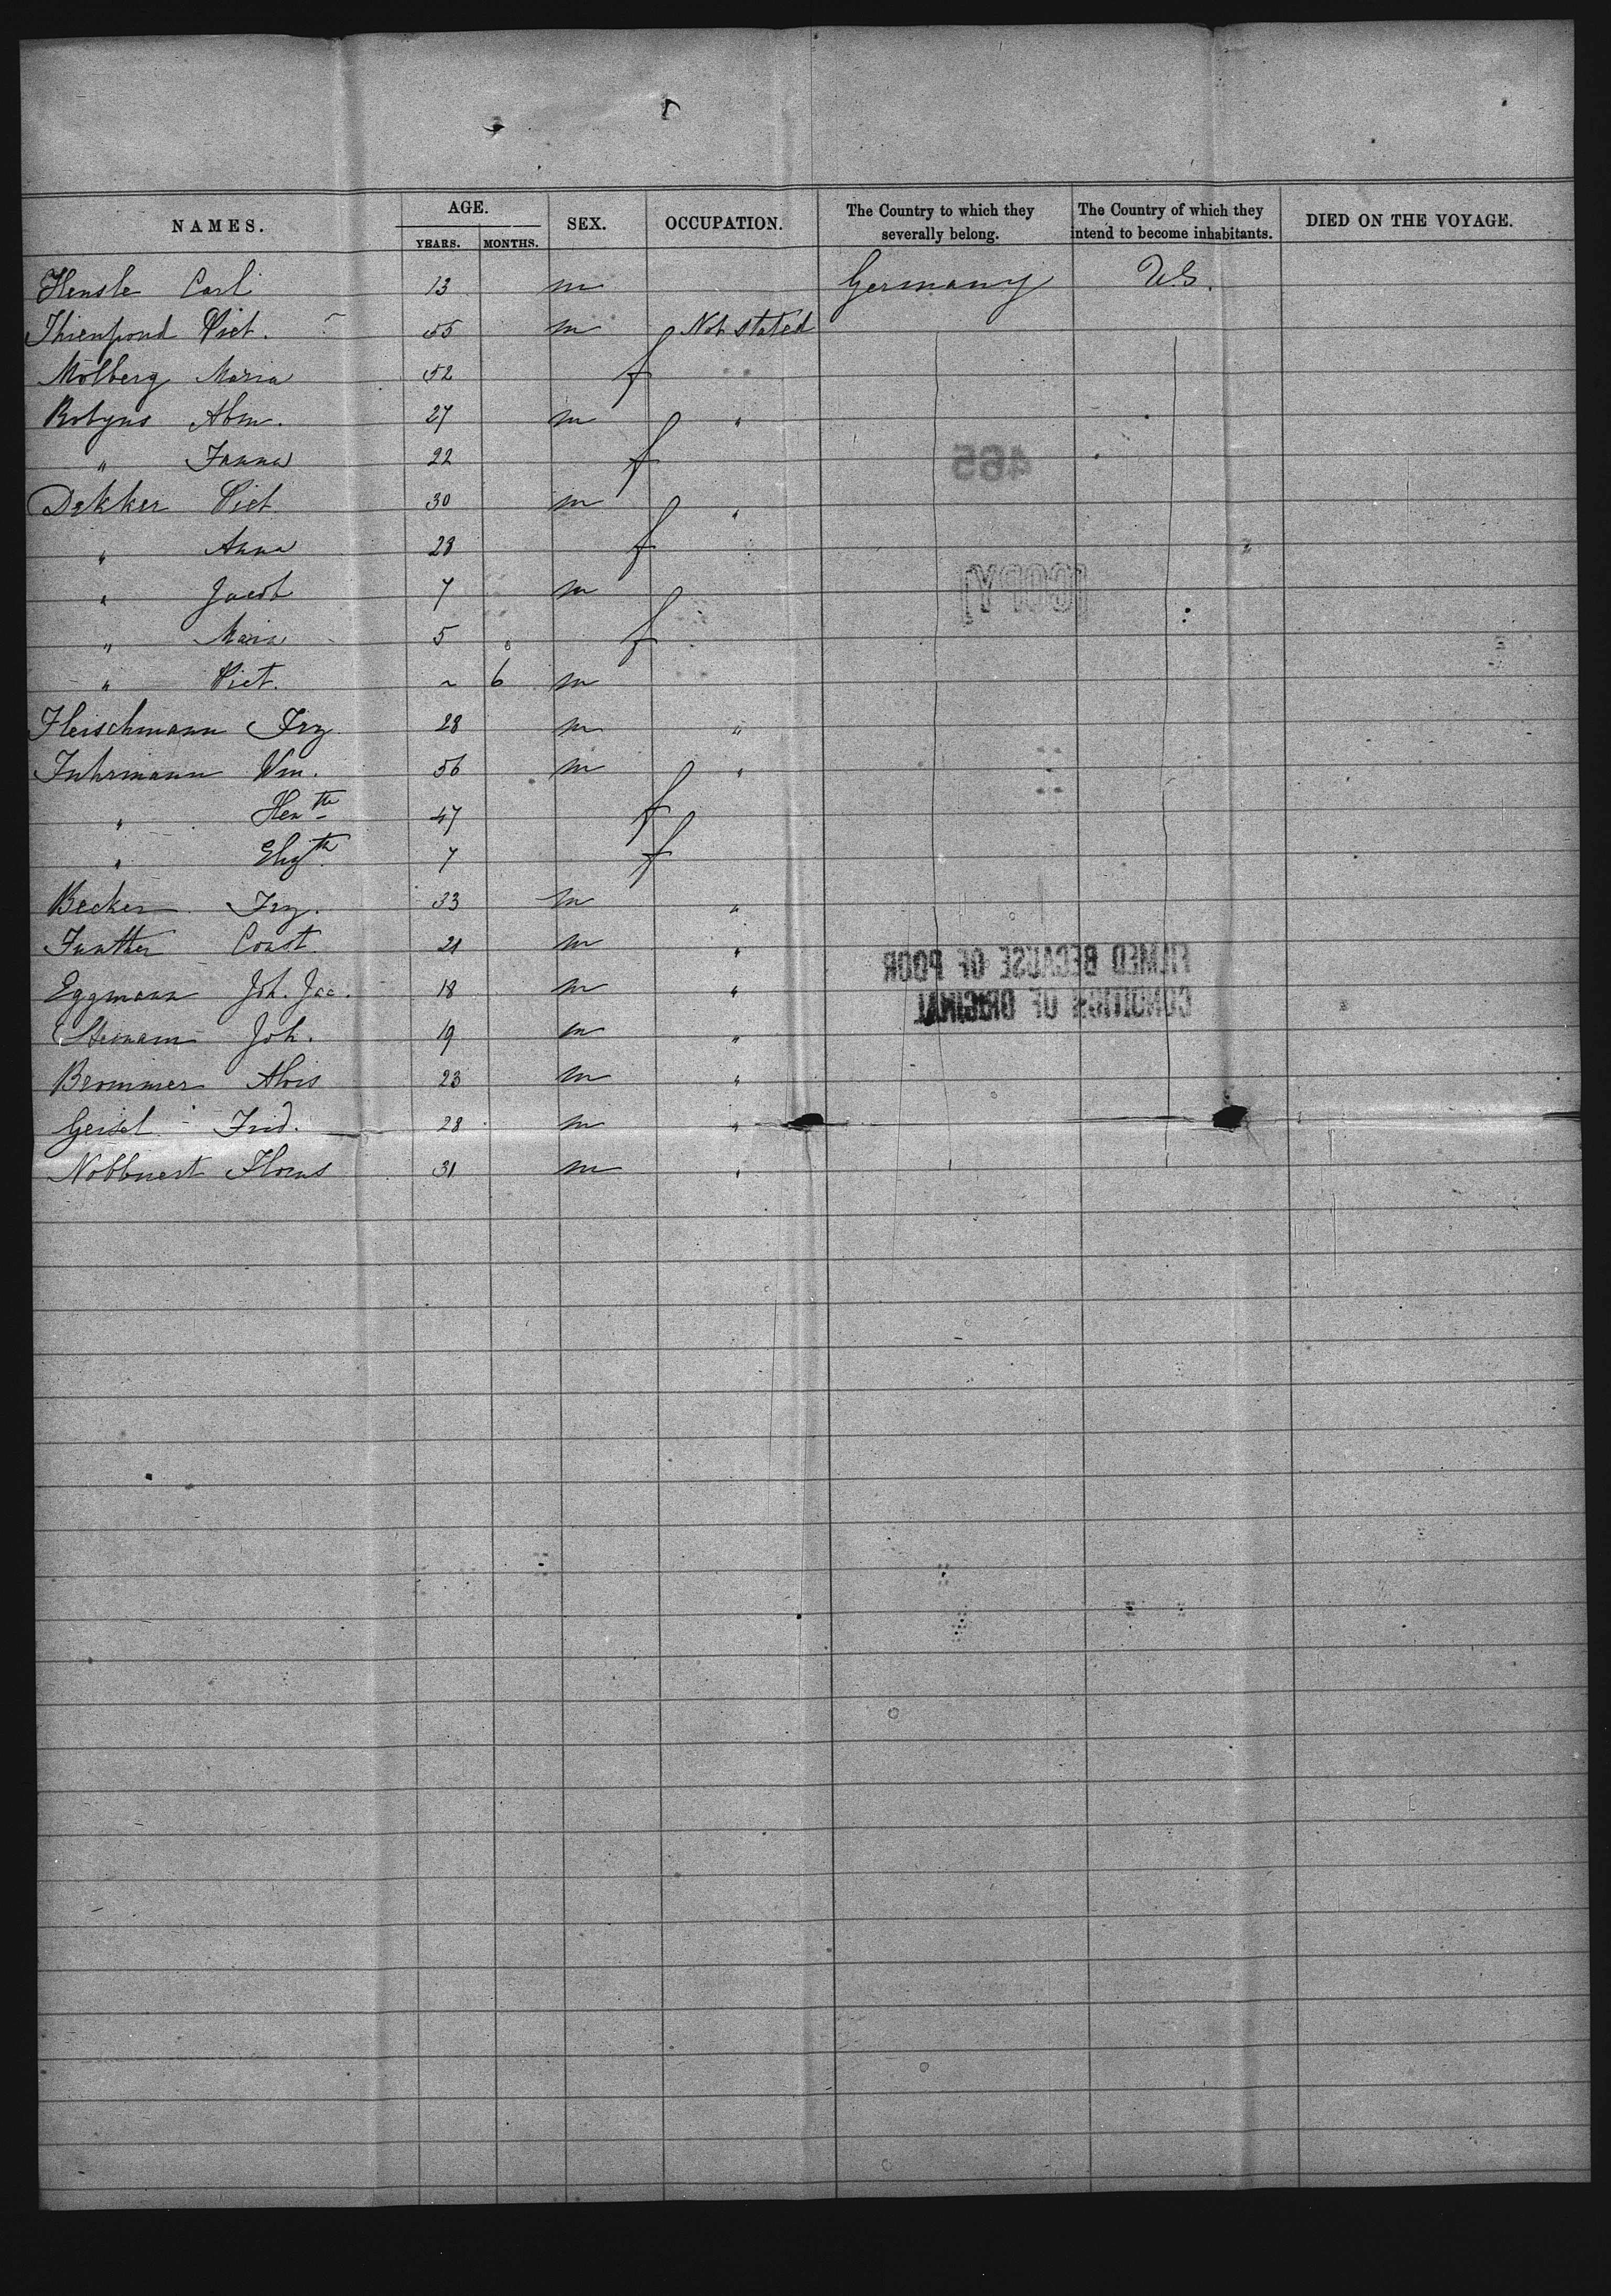 NAMES. AGE. SEX. OCCUPATION. The Country to which they severally belong. The Country of which they intend to become inhabitants. DIED ON THE VOYAGE.
YEARS. MONTHS.
Hensle Carl 13 m Germany U.S.
Thienpond Piet. 55 m Not stated
Mölberg Maria 52 f
Robyns Abm. 27 m "
" Janna 22 f
Dekker Piet 30 m "
" Anna 28 f
" Jacob 7 m
" Maria 5 f
" Piet. ~ 6 m
Fleischmann Frz 28 m "
Fuhrmann Wm. 56 m "
" Hen th 47 f
" Elizth 7 f
Becker Frz. 33 m "
Const. 21 m "
Eggmann Joh. Jac. 18 m "
Joh. 19 m "
Brommer Alois 23 m "
Geisel Frid. 28 m "
31 m "
465
COPY
FILMED BECAUSE OF POOR
CONDITION OF ORIGINAL